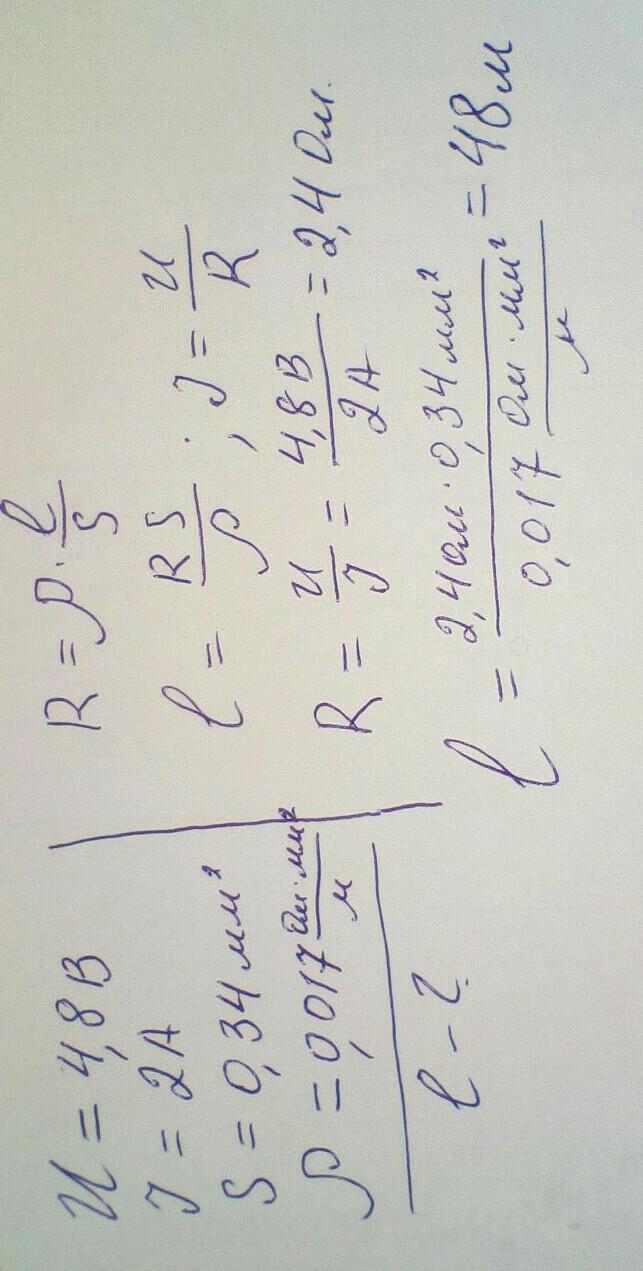 U = 4,8 В
J = 2 А
S = 0,34 мм²
ρ = 0,017 Ом·мм²/м
l - ?
R = ρ · l/S
l = RS/ρ ; J = U/R
R = U/J = 4,8 В/2 А = 2,4 Ом.
l = 2,4 Ом · 0,34 мм²/0,017 Ом·мм²/м = 48 м